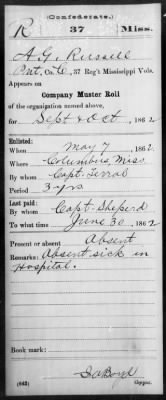 (Confederate.)
R 37 Miss.
A. G. Russell
Pvt, Co. C, 37 Reg't Mississippi Vols.
Appears on
Company Muster Roll
of the organization named above,
for Sept & Oct, 1862
Enlisted:
When May 7, 1862
Where Columbus, Miss.
By whom Capt. Terral
Period 3 yrs
Last paid:
By whom Capt. Sheperd
To what time June 30, 1862
Present or absent Absent
Remarks: Absent sick in
Hospital.
Book mark:
(642) Copyist.